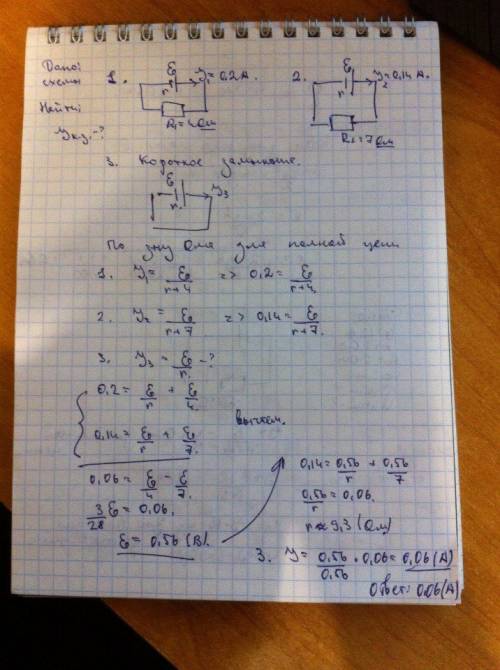 Дано:
схемы
Найти:
Yкз.-?
1.
ℰ
r
Y₁=0,2A.
R₁=4Ом
2.
ℰ
r
Y₂=0,14A.
R₂=7Ом
3. Короткое замыкание.
ℰ
r.
Y₃
По з-ну Ома для полной цепи
1. Y₁ = ℰ/(r+4) => 0,2 = ℰ/(r+4)
2. Y₂ = ℰ/(r+7) => 0,14 = ℰ/(r+7).
3. Y₃ = ℰ/r. -?
0,2 = ℰ/r + ℰ/4.
0,14 = ℰ/r + ℰ/7.
вычтем.
0,06 = ℰ/4 - ℰ/7.
3/28 ℰ = 0,06.
ℰ = 0,56 (В).
0,14 = 0,56/r + 0,56/7
0,56/r = 0,06.
r ≈ 9,3 (Ом)
3. Y = 0,56/0,56 · 0,06 = 0,06 (А)
Ответ: 0,06 (А)